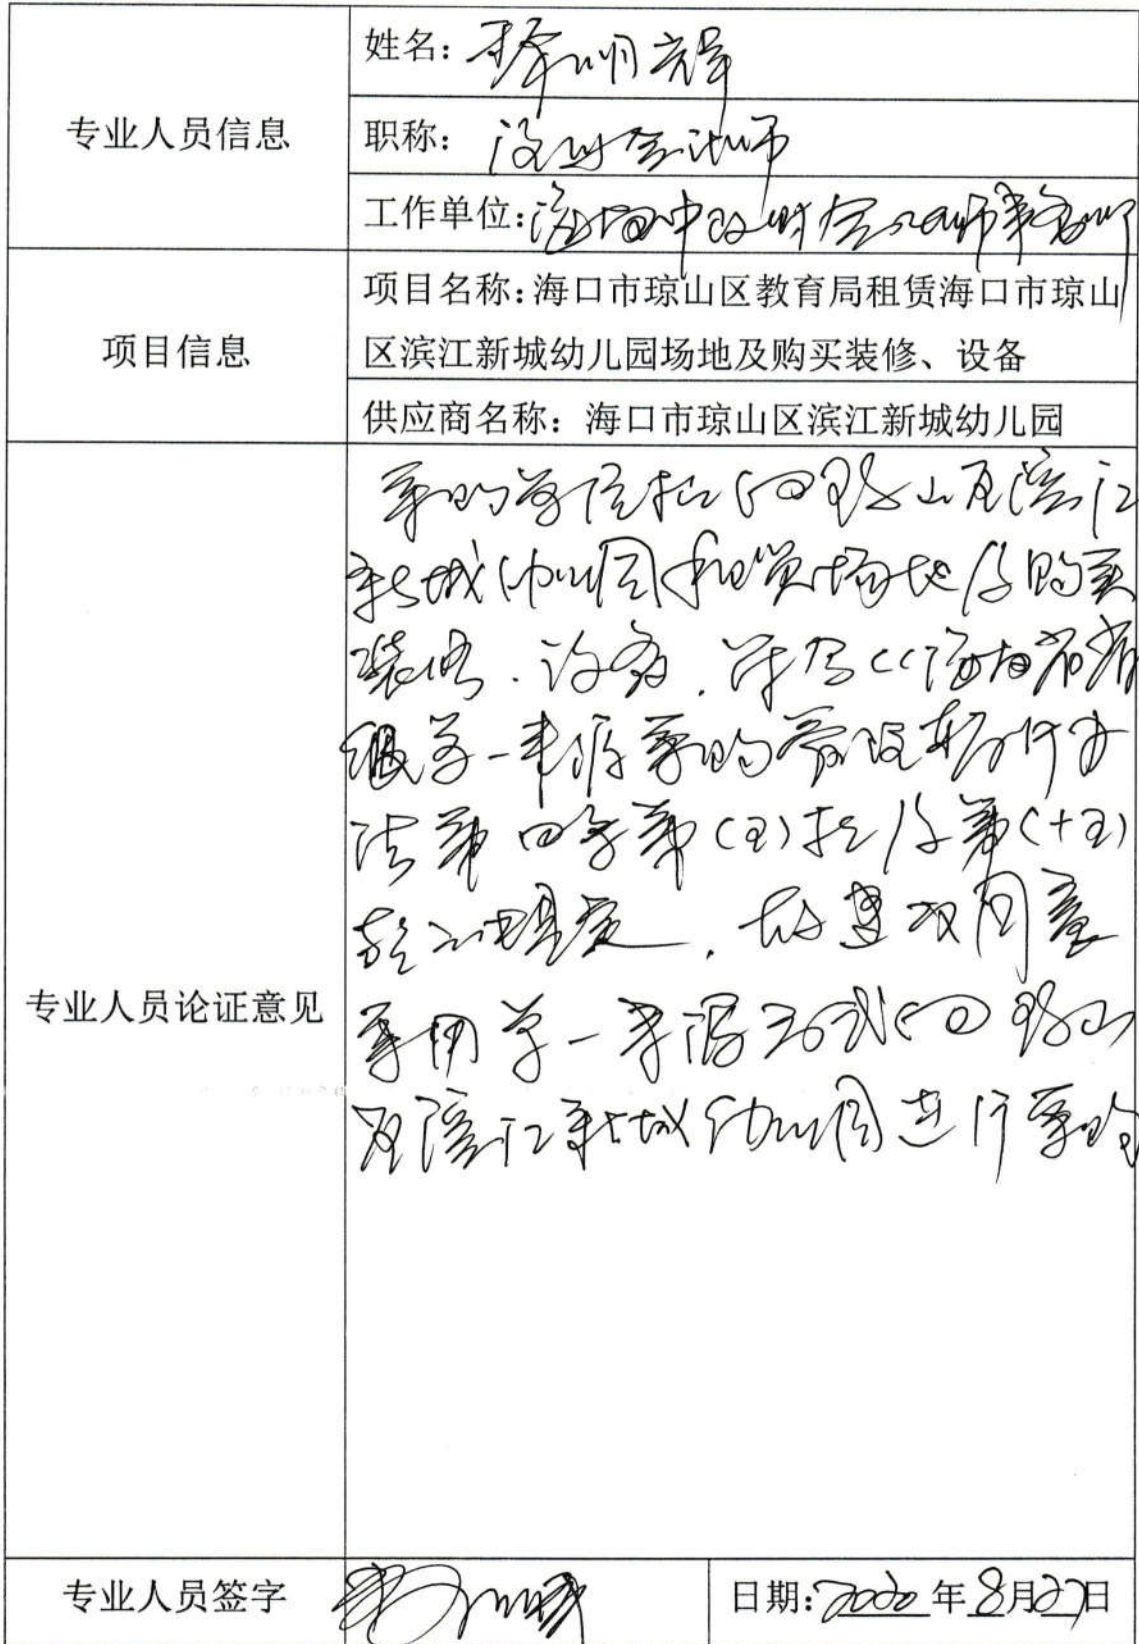 专业人员信息
姓名:明
职称:会计师
工作单位:海中会计师事务所
项目信息
项目名称:海口市琼山区教育局租赁海口市琼山
区滨江新城幼儿园场地及购买装修、设备
供应商名称:海口市琼山区滨江新城幼儿园
专业人员论证意见
采购单位拟向琼山区滨江
新城幼儿园租赁场地及购买
装修、设备,符合《海南省省
级单一来源采购管理暂行办
法》第四条第(五)款及第(十五)
款之规定,故建议同意
采用单一来源方式向琼山
区滨江新城幼儿园进行采购
专业人员签字
日期:2020年8月27日